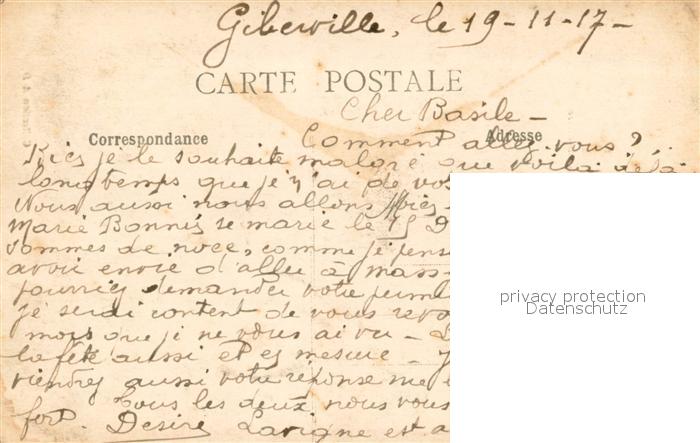 Giberville, le 19-11-17-
CARTE POSTALE
Cher Basile-
Correspondance
Adresse
Comment allez-vous?
Bien je le souhaite malgré que voilà déjà
longtemps que je n'ai de vos
Nous aussi nous allons bien
Marie Bonnis se marie le 15 D
sommes de noce, comme je pens
avoir envie d'aller à mass
pourriez demander votre perm
je serai content de vous revo
mois que je ne vous ai vu -
la fête aussi et es mesure -
viendrez aussi votre réponse me
Tous les deux nous vous
fort. Desire Lavigne est a
privacy protection
Datenschutz